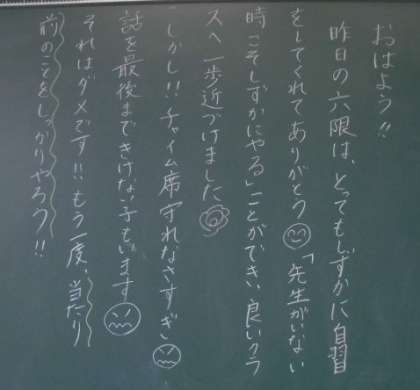 おはよう!!
昨日の六限は、とってもしずかに自習
をしてくれてありがとう「先生がいない
時こそしずかにやる」ことができ、良いクラ
スへ一歩近づけました
しかし!!チャイム席守れなさすぎ
話を最後まできけない子もいます
それはダメです!!もう一度、当たり
前のことをしっかりやろう!!